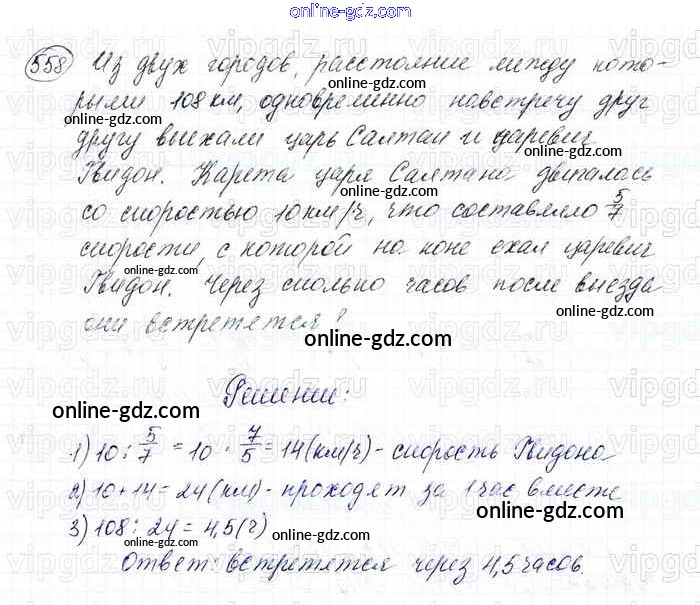 558 Из двух городов, расстояние между кото-
рыми 108 км, одновременно навстречу друг
другу выехали царь Салтан и царевич
Гвидон. Карета царя Салтана двигалась
со скоростью 10 км/ч, что составляло 5/7
скорости, с которой на коне ехал царевич
Гвидон. Через сколько часов после выезда
они встретятся?
Решение:
1) 10 : 5/7 = 10 · 7/5 = 14 (км/ч) - скорость Гвидона
2) 10 + 14 = 24 (км) - проходят за 1 час вместе
3) 108 : 24 = 4,5 (ч)
Ответ: встретятся через 4,5 часов.
online-gdz.com
online-gdz.com
online-gdz.com
online-gdz.com
online-gdz.com
online-gdz.com
online-gdz.com
online-gdz.com
online-gdz.com
online-gdz.com
online-gdz.com
online-gdz.com
online-gdz.com